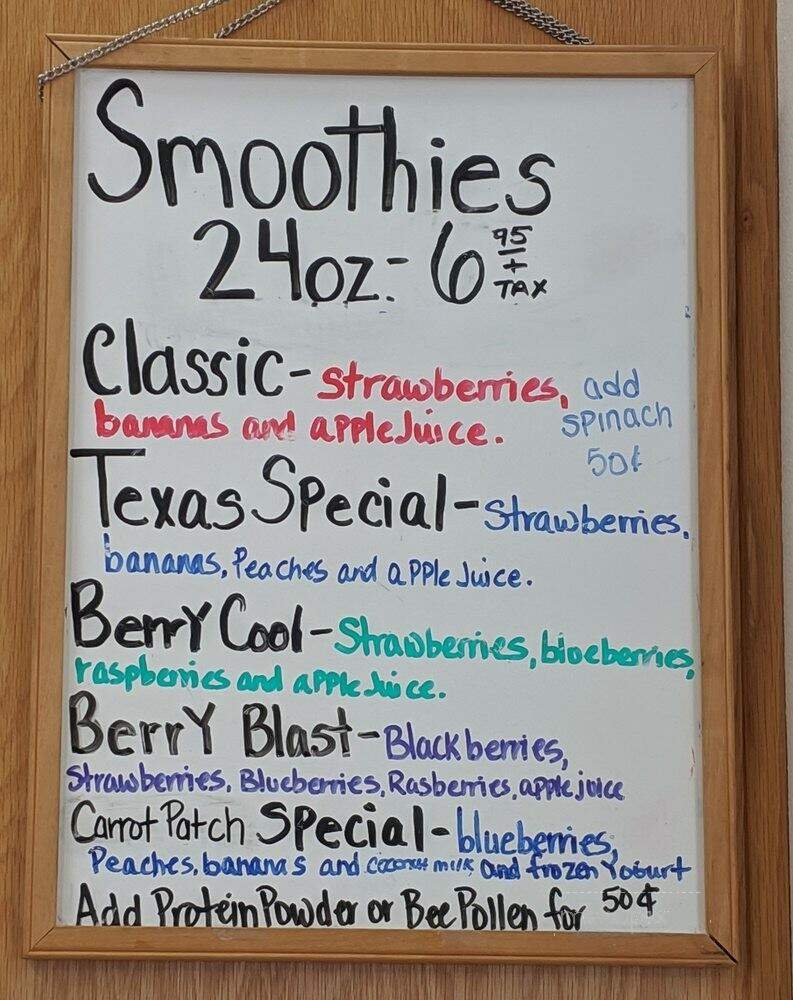 Smoothies
24oz:- 6 95 + TAX
Classic- strawberries, add
bananas and apple Juice. spinach
50¢
Texas Special- Strawberries,
bananas, Peaches and apple Juice.
Berry Cool- Strawberries, blueberries,
raspberries and apple Juice.
Berry Blast- Blackberries,
Strawberries, Blueberries, Rasberries, apple juice
Carrot Patch Special- blueberries,
Peaches, bananas and coconut milk and frozen Yogurt
Add Protein Powder or Bee Pollen for 50¢